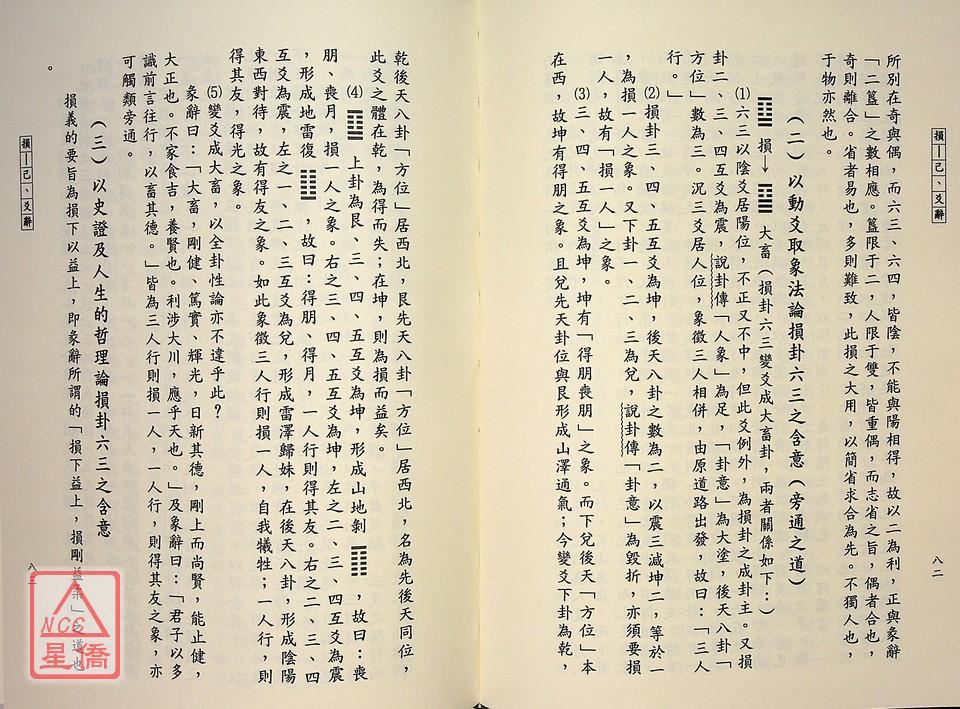 損—己、爻辭
所別在奇與偶，而六三、六四，皆陰，不能與陽相得，故以二為利，正與彖辭
「二簋」之數相應。簋限于二，人限于雙，皆重偶，而志省之旨，偶者合也，
奇則離合。省者易也，多則難致，此損之大用，以簡省求合為先。不獨人也，
于物亦然也。
（二）以動爻取象法論損卦六三之含意（旁通之道）
䷨損→䷙大畜（損卦六三變爻成大畜卦，兩者關係如下：）
⑴六三以陰爻居陽位，不正又不中，但此爻例外，為損卦之成卦主。又損
卦二、三、四互爻為震，說卦傳「人象」為足，「卦意」為大塗，後天八卦「
方位」數為三。況三爻居人位，象徵三人相併，由原道路出發，故曰：「三人
行。」
⑵損卦三、四、五互爻為坤，後天八卦之數為二，以震三減坤二，等於一
，為損一人之象。又下卦一、二、三為兌，說卦傳「卦意」為毀折，亦須要損
一人，故有「損一人」之象。
⑶三、四、五互爻為坤，坤有「得朋喪朋」之象。而下兌後天「方位」本
在西，故坤有得朋之象。且兌先天卦位與艮形成山澤通氣；今變爻下卦為乾，
八二
損—己、爻辭
乾後天八卦「方位」居西北，艮先天八卦「方位」居西北，名為先後天同位，
此爻之體在乾，為得而失；在坤，則為損而益矣。
⑷䷨上卦為艮，三、四、五互爻為坤，形成山地剝䷖，故曰：喪
朋、喪月，損一人之象。右之二、三、四、五互爻為坤，左之二、三、四互爻為震
，形成地雷復䷗，故曰：得朋、得月，一人行則得其友。右之二、三、四
互爻為震，左之一、二、三互爻為兌，形成雷澤歸妹，在後天八卦，形成陰陽
東西對待，故有得友之象。如此象徵三人行則損一人，自我犧牲；一人行，則
得其友，得光之象。
⑸變爻成大畜，以全卦性論亦不違乎此？
彖辭曰：「大畜，剛健、篤實、輝光，日新其德，剛上而尚賢，能止健，
大正也。不家食吉，養賢也。利涉大川，應乎天也。」及象辭曰：「君子以多
識前言往行，以畜其德。」皆為三人行則損一人，一人行，則得其友之象，亦
可觸類旁通。
（三）以史證及人生的哲理論損卦六三之含意
損義的要旨為損下以益上，即彖辭所謂的「損下益上，損剛益柔」之道也
。
八二
NCC
星僑